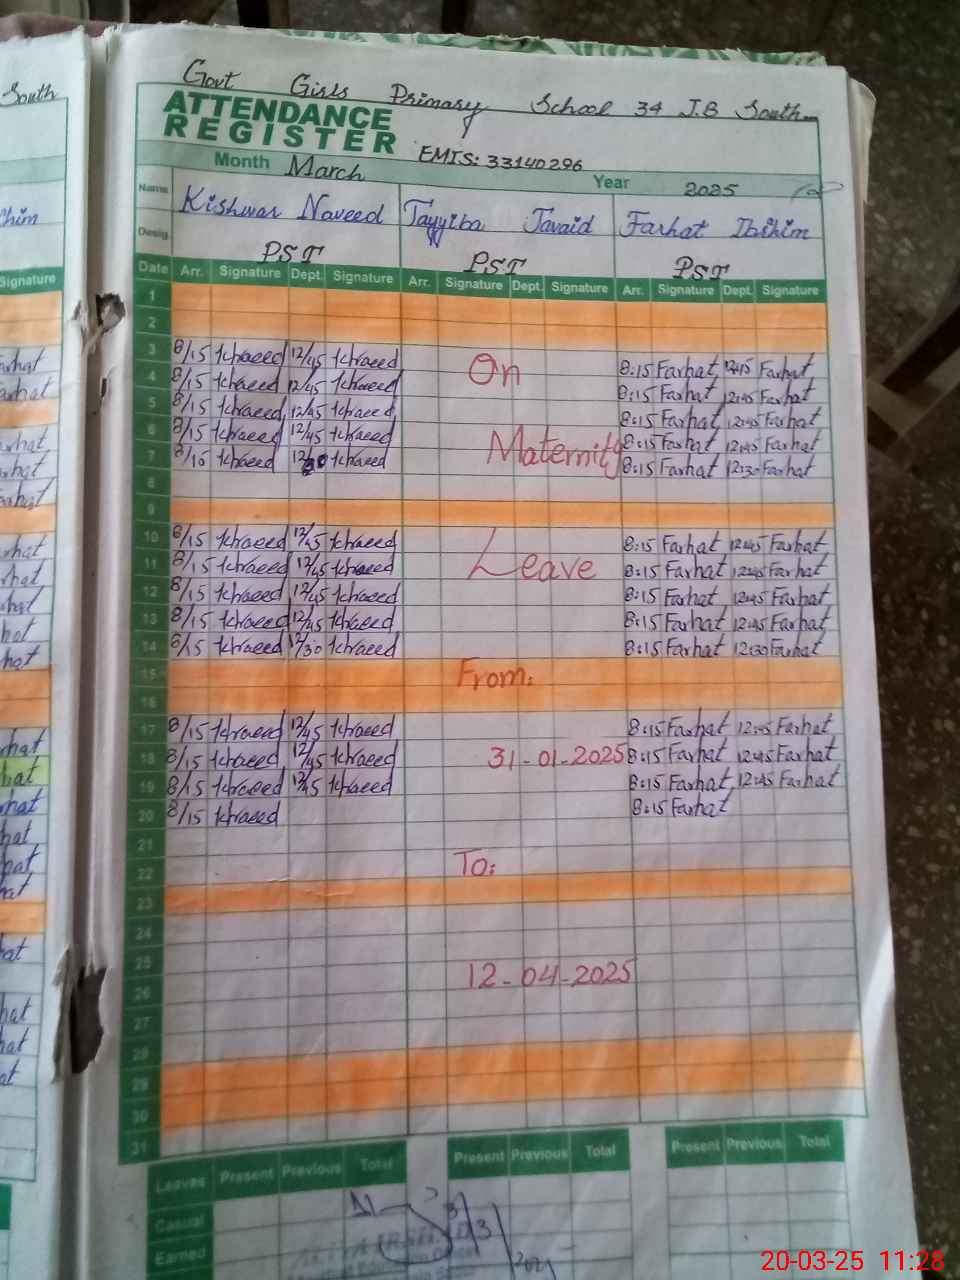 Govt Girls Primary School 34 J.B South
South
ATTENDANCE
REGISTER
EMIS: 33140296
Month March Year 2025
Name Kishwar Naveed Tayyiba Javaid Farhat Ibihim
Desig. PST PST PST
Date Arr. Signature Dept. Signature Arr. Signature Dept. Signature Arr. Signature Dept. Signature
1
2
3 8/15 12/45 8:15 Farhat 12:45 Farhat
4 8/15 12/45 On 8:15 Farhat 12:45 Farhat
5 8/15 12/45 8:15 Farhat 12:45 Farhat
6 8/15 12/45 8:15 Farhat 12:45 Farhat
7 Maternity 8:15 Farhat 12:30 Farhat
8
9
10 8/15 12/45 8:15 Farhat 12:45 Farhat
11 8/15 12/45 Leave 8:15 Farhat 12:45 Farhat
12 8/15 12/45 8:15 Farhat 12:45 Farhat
13 8/15 12/45 8:15 Farhat 12:45 Farhat
14 8/15 12/30 8:15 Farhat 12:30 Farhat
15 From:
16
17 8/15 12/45 8:15 Farhat 12:45 Farhat
18 8/15 12/45 31-01-2025 8:15 Farhat 12:45 Farhat
19 8/15 12/45 8:15 Farhat 12:45 Farhat
20 8/15 8:15 Farhat
21
22 To:
23
24
25
26 12-04-2025
27
28
29
30
31
Leaves Present Previous Total Present Previous Total Present Previous Total
Casual
Earned
20-03-25 11:28